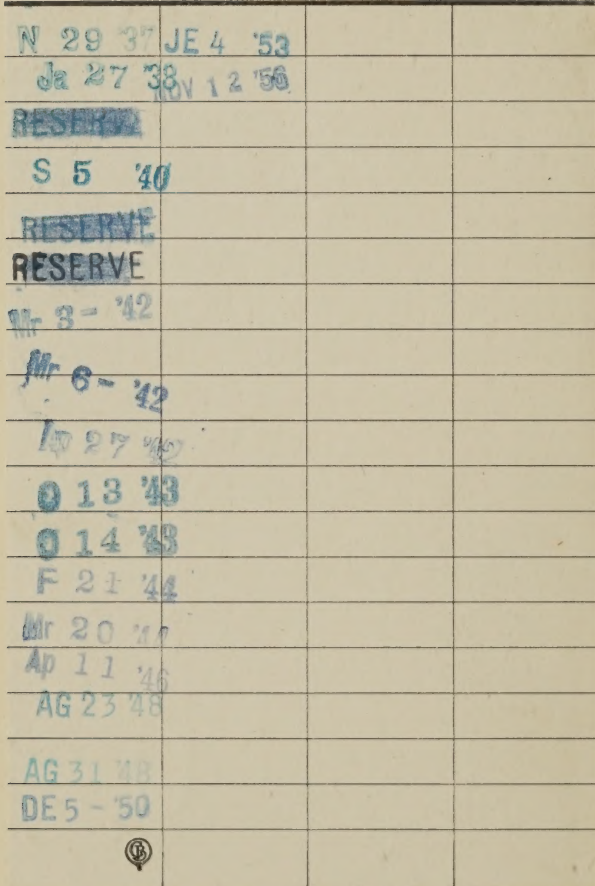 N 29 '37
Ja 27 '38
RESERVE
S 5 '40
RESERVE
RESERVE
Mr 3 - '42
Mr 6 - '42
27 '42
O 13 '43
O 14 '43
F 21 '44
Mr 20 '44
Ap 11 '46
AG 23 '48
AG 31 '48
DE 5 - '50
JE 4 '53
NOV 12 '56